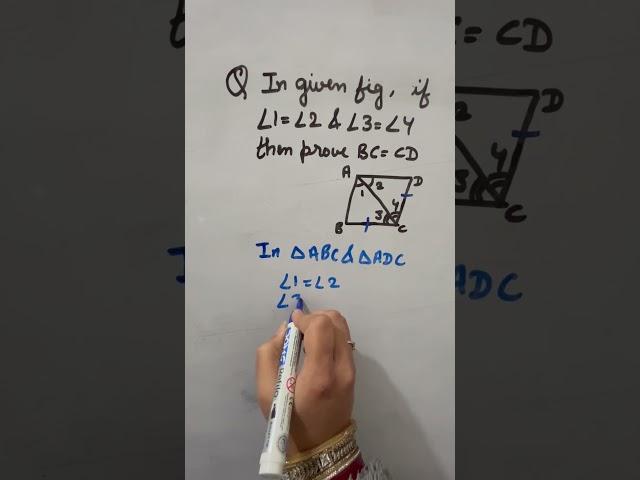 Q In given fig, if
∠1=∠2 & ∠3=∠4
then prove BC=CD
A D
1 2
3 4
B C
In △ABC & △ADC
∠1=∠2
∠3